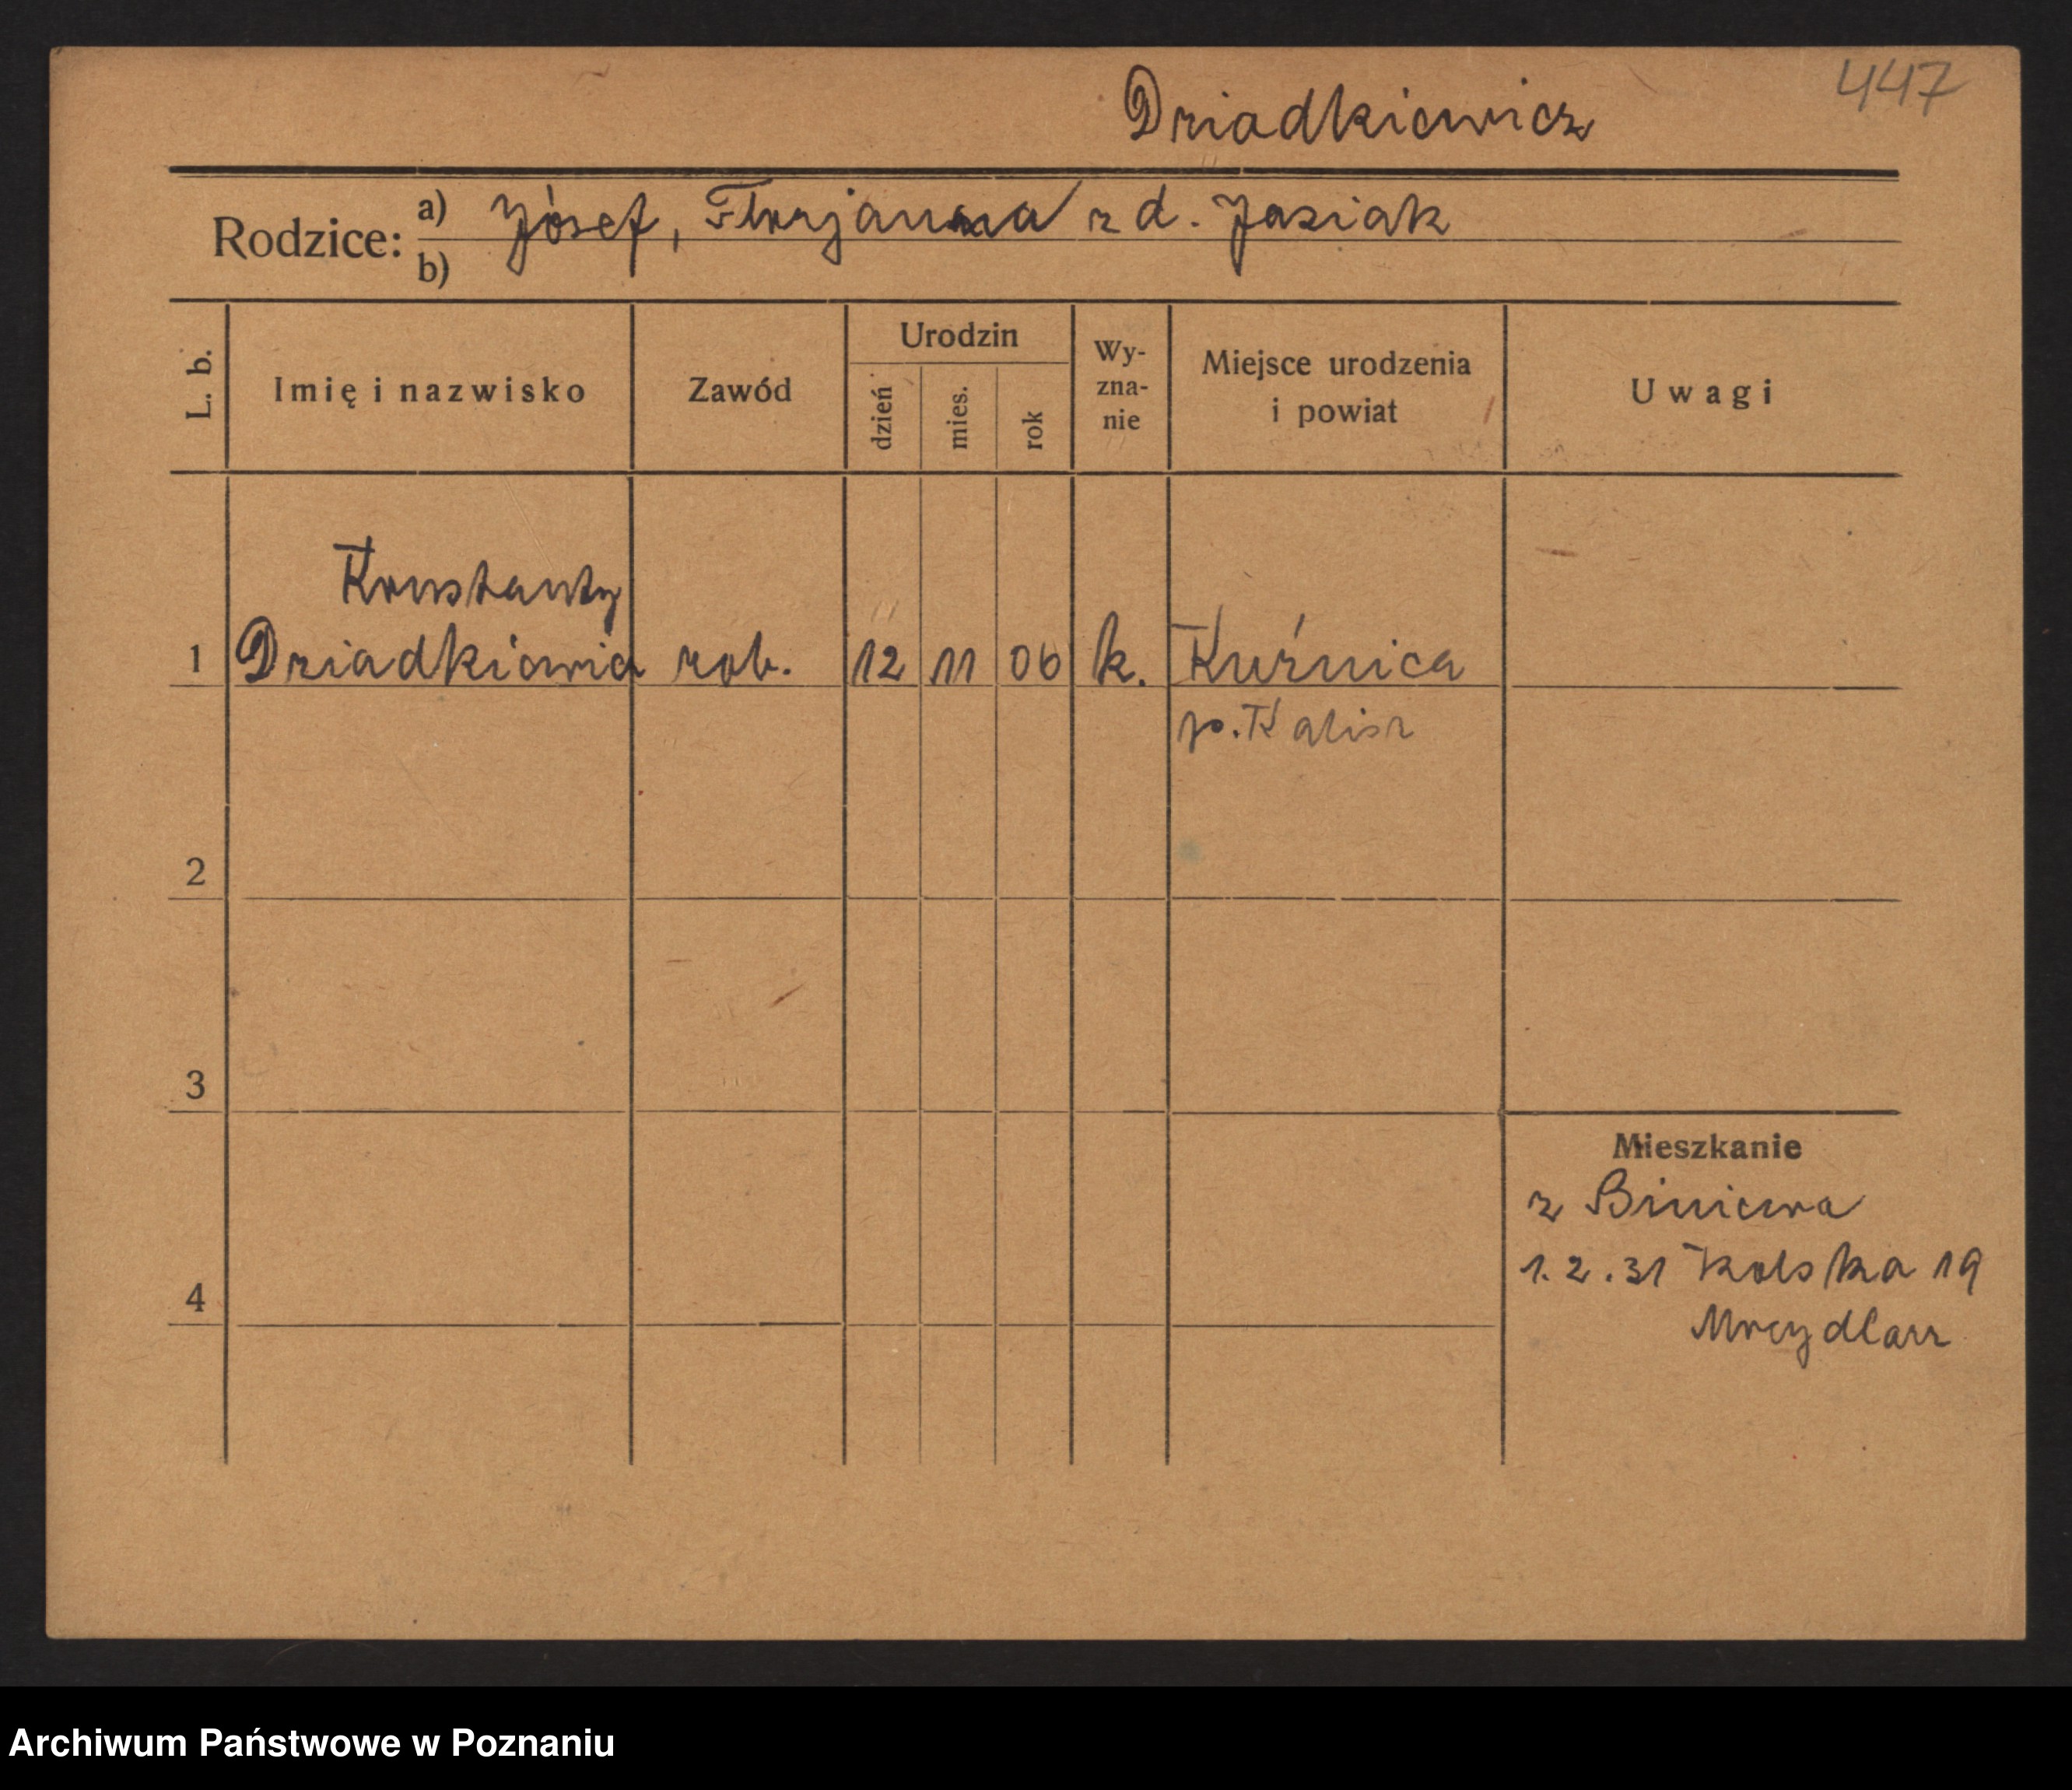 447
Dziadkiewicz
Rodzice: a) Józef, Florjanna z d. Jasiak
b)
L. b. Imię i nazwisko Zawód Urodzin dzień mies. rok Wy-zna-nie Miejsce urodzenia i powiat Uwagi
Konstanty
1 Dziadkiewicz rob. 12 11 06 k. Kuźnica
p. Kalisz
2
3
Mieszkanie
z Biniewa
1.2.31 Kolska 19
4
Archiwum Państwowe w Poznaniu